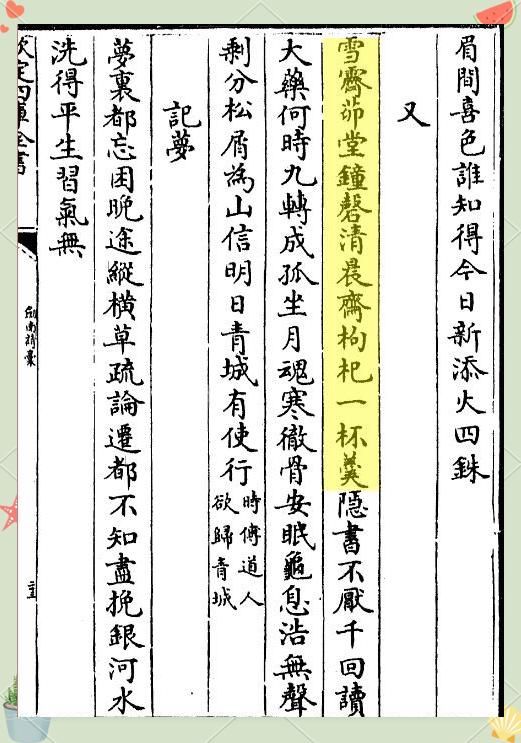 眉間喜色誰知得今日新添火四銖
又
雪霽茆堂鐘磬清晨齋枸杞一杯羹隠書不厭千回讀
大藥何時九轉成孤坐月魂寒徹骨安眠龜息浩無聲
剩分松屑為山信明日青城有使行
時傅道人
欲歸青城
記夢
夢裏都忘困晚途縱橫草疏論遷都不知盡挽銀河水
洗得平生習氣無
欽定四庫全書
劍南詩稾